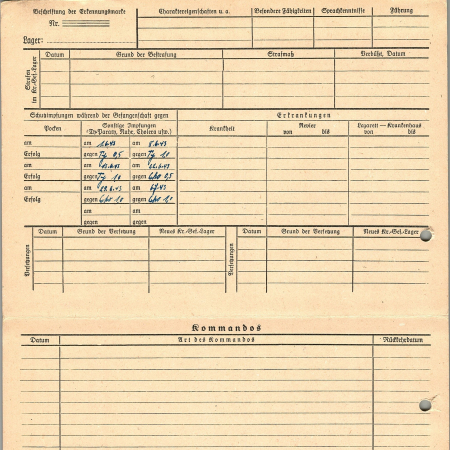 Beschriftung der Erkennungsmarke
Nr.
Lager:
Charaktereigenschaften u. a.
Besondere Fähigkeiten
Sprachkenntnisse
Führung
Strafen im Kr.-Gef.-Lager
Datum
Grund der Bestrafung
Strafmaß
Verbüßt, Datum
Schutzimpfungen während der Gefangenschaft gegen
Erkrankungen
Pocken
Sonstige Impfungen
(Ty-Paraty, Ruhr, Cholera usw.)
Krankheit
Revier
von bis
Lazarett — Krankenhaus
von bis
am am 1.6.43 am 8.6.43
Erfolg gegen Ty 0,5 gegen Ty 1,0
am am am
Erfolg gegen Ty 1,0 gegen Cho 0,5
am am am
Erfolg gegen Cho 1,0 gegen Cho 1,0
am am
gegen gegen
Versetzungen
Datum
Grund der Versetzung
Neues Kr.-Gef.-Lager
Versetzungen
Datum
Grund der Versetzung
Neues Kr.-Gef.-Lager
Kommandos
Datum
Art des Kommandos
Rückkehrdatum